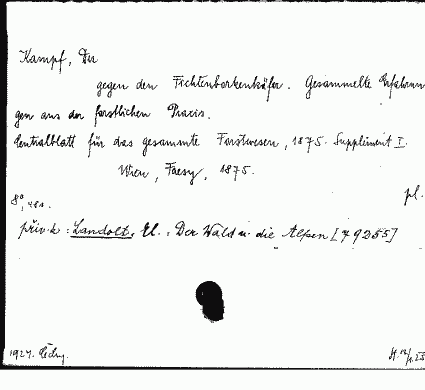 Kampf, Der
gegen den Fichtenborkenkäfer. Gesammelte Erfahrun
gen aus der forstlichen Praxis.
Centralblatt für das gesammte Forstwesen, 1875. Supplement I.
Wien, Faesy, 1875.
pl.
8°,
přív. k : Landolt, El.: Der Wald u. die Alpen [79255]
1927.